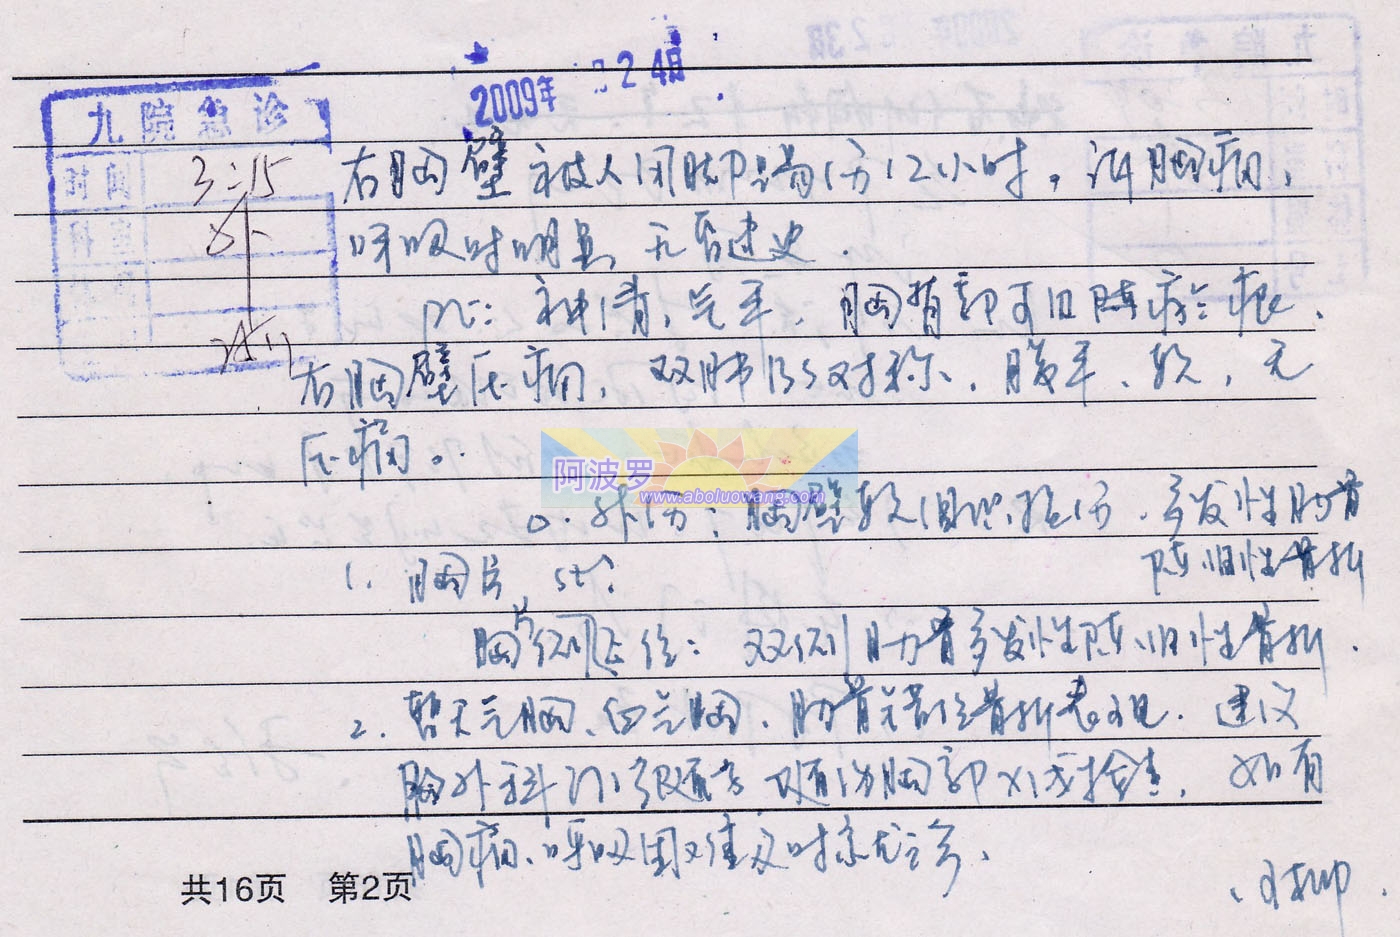 2009年 2 4日
九院急诊
时间 3:15
科室
右胸壁被人用脚踢伤12小时，诉胸痛，
呼吸时明显，无昏迷史
PE：神清，气平，胸背部可见陈旧瘢痕，
右胸壁压痛，双肺呼吸对称，腹平，软，无
压痛。
阿波罗
www.aboluowang.com
D. 外伤；胸壁软组织挫伤，多发性肋骨
陈旧性骨折
1. 胸片 st!
胸片 正位：双侧肋骨多发性陈旧性骨折.
2. 暂无气胸、血气胸、肋骨 骨折表现. 建议
胸外科门诊随访 胸部X线检查，如有
胸痛、呼吸困难及时来就诊、
共16页 第2页